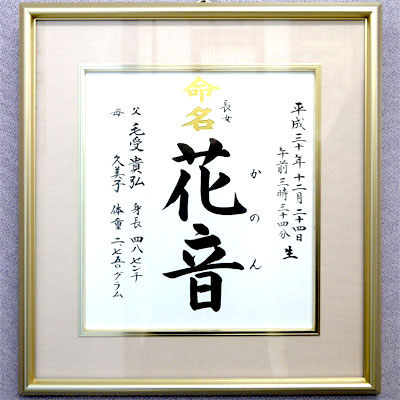 平成三十年十二月二十四日
午前三時三十四分
生
長女
命名
花音
かのん
父 毛受 貴弘
母 久美子
身長 四八センチ
体重 二、七五〇グラム